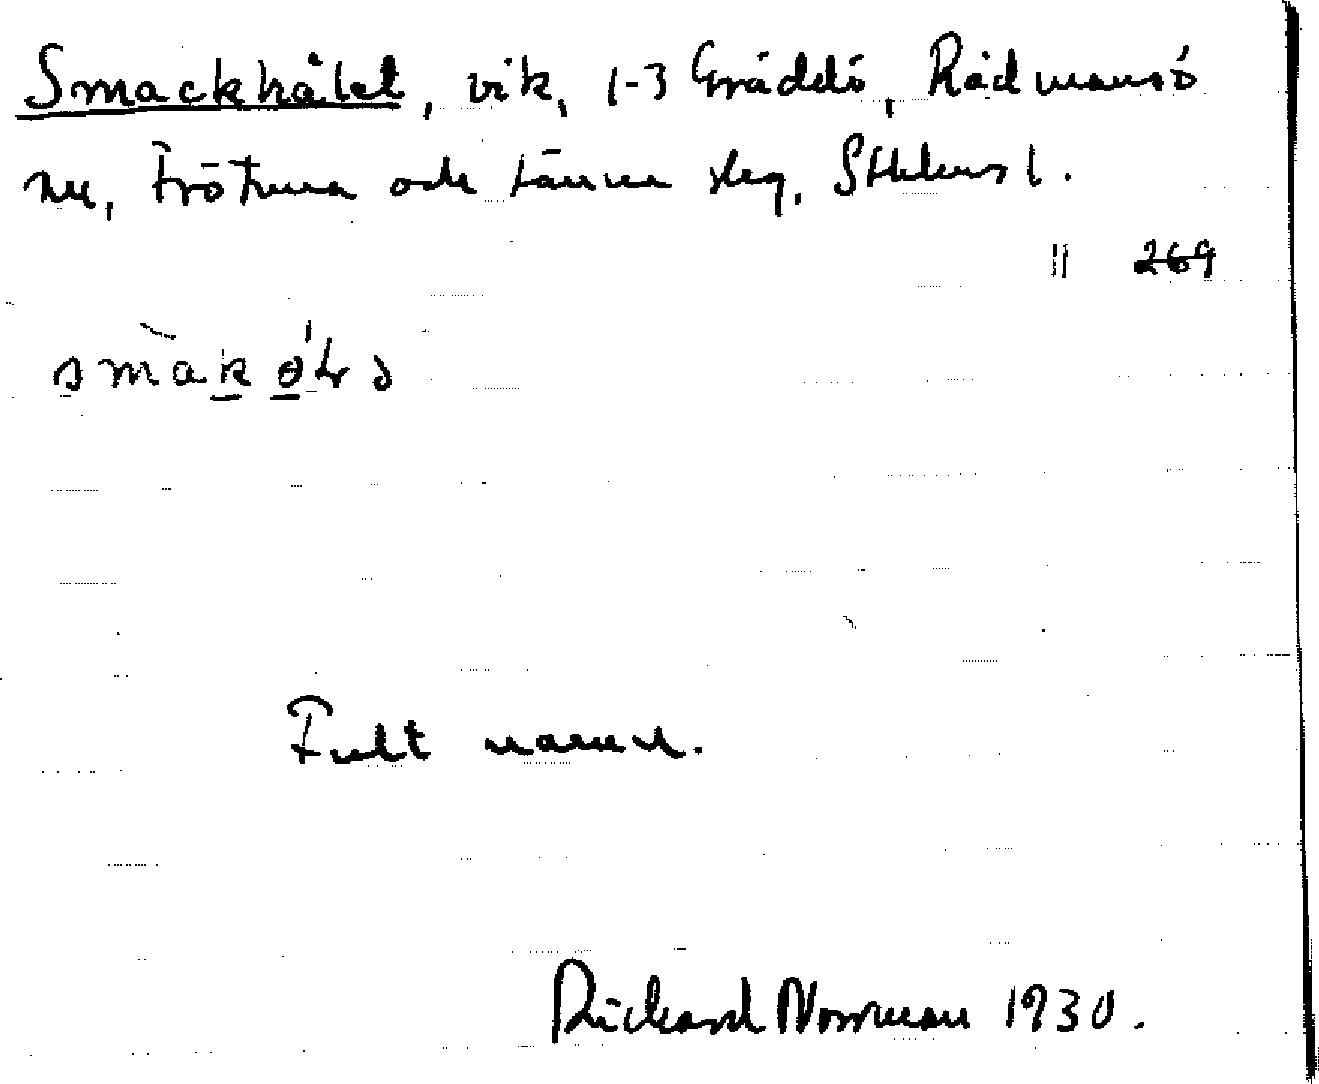 Smackhålet, vik, 1-3 Gräddö, Rådmansö
sn, Frötuna och Länna skg, Sthlms l.
11 269
Fult namn.
Rickard Norrman 1930.